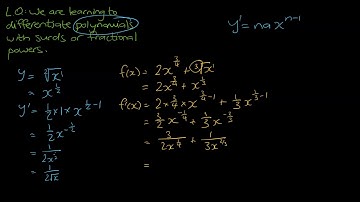 L.O: We are learning to
differentiate polynomials
with surds or fractional
powers.
y' = nax^{n-1}
y = \sqrt{x^1}
= x^{\frac{1}{2}}
y' = \frac{1}{2} × 1 × x^{\frac{1}{2}-1}
= \frac{1}{2}x^{-\frac{1}{2}}
= \frac{1}{2x^{\frac{1}{2}}}
= \frac{1}{2\sqrt{x}}
f(x) = 2x^{\frac{3}{4}} + \sqrt[3]{x^1}
= 2x^{\frac{3}{4}} + x^{\frac{1}{3}}
f(x) = 2 × \frac{3}{4} × x^{\frac{3}{4}-1} + \frac{1}{3}x^{\frac{1}{3}-1}
= \frac{3}{2}x^{-\frac{1}{4}} + \frac{1}{3}x^{-\frac{2}{3}}
= \frac{3}{2x^{\frac{1}{4}}} + \frac{1}{3x^{2/3}}
=